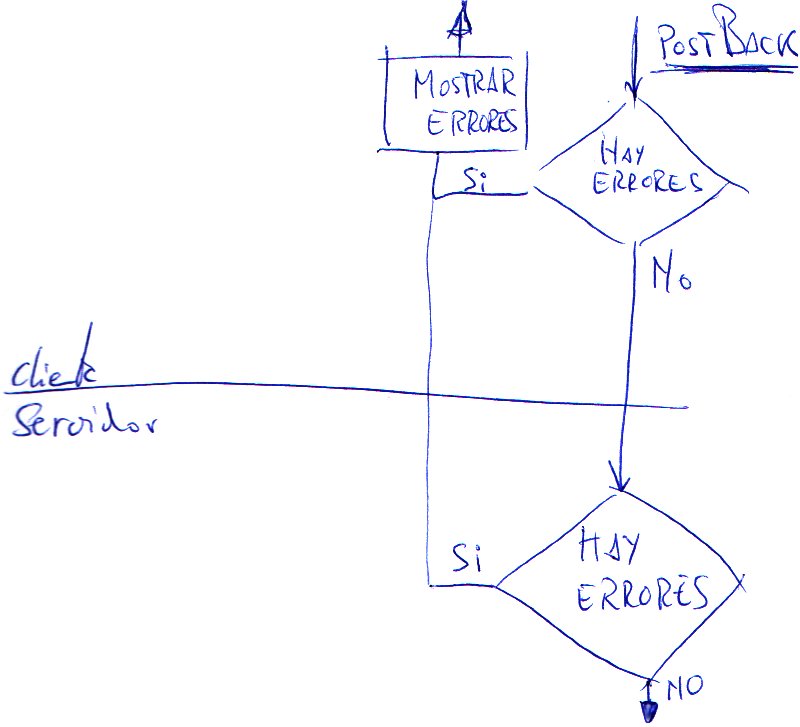 POSTBACK
MOSTRAR
ERRORES
HAY
ERRORES
Si
No
Servidor
Si
HAY
ERRORES
NO